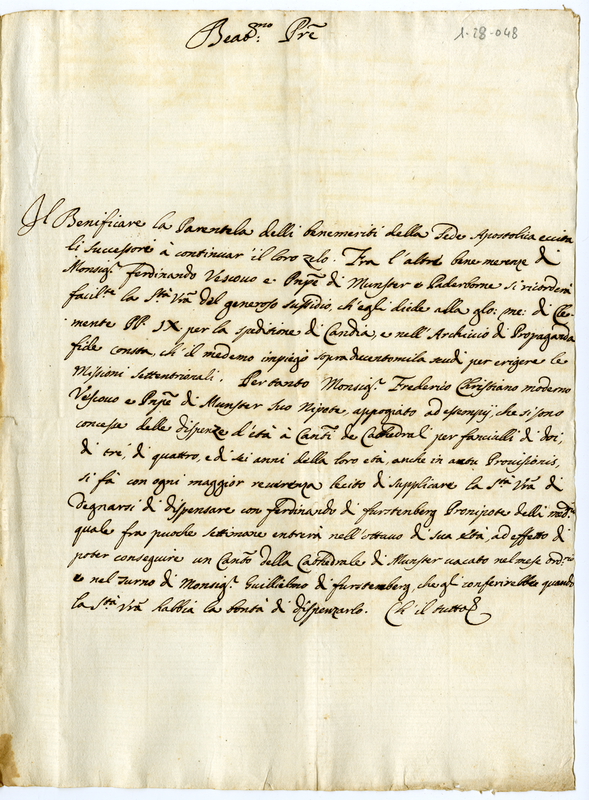 Beat.mo Pr͠e
1-28-048
Il Benificare la Parentela delli benemeriti della Sede Apostolica eccita
li successori à continuar il loro zelo. Fra l'altre benemerenze di
Monsig.r Ferdinando Vescouo e Pnp͠e di Munster e Paderborne si ricorderà
facil.te la S.tà Vr͠a del generoso sussidio, ch'egli diede alla glo: me: di Cle-
mente PP. IX per la speditione di Candia, e nell'Archivio di Propaganda
fide consta, ch'il medemo impiegò sopra ducentomila scudi per erigere le
Missioni Settentrionali. Per tanto Monsig.r Frederico Christiano moderno
Vescouo e Pnp͠e di Munster suo Nipote, appogiato ad essempij, che si sono
concesse delle dispenze d'età à Can.ti de Cathedrali per fanciulli di doi,
di tré, di quattro, e di sei anni della loro età, anche in actu Provisionis,
si fà con ogni maggior reverenza lecito di supplicare la S.tà Vr͠a di
degnarsi di dispensare con Ferdinando di furstenberg Pronipote delli med.mi
quale fra puoche settimane entrerà nell'ottauo di sua età, ad effetto di
poter conseguire un Can.to della Cathedrale di Munster uacato nel mese ord.rio
e nel turno di Monsig.r Guillielmo di furstemberg, che gli conferirebbe quando
la S.tà Vr͠a habbia la bontà di dispenzarlo. Ch'il tutto